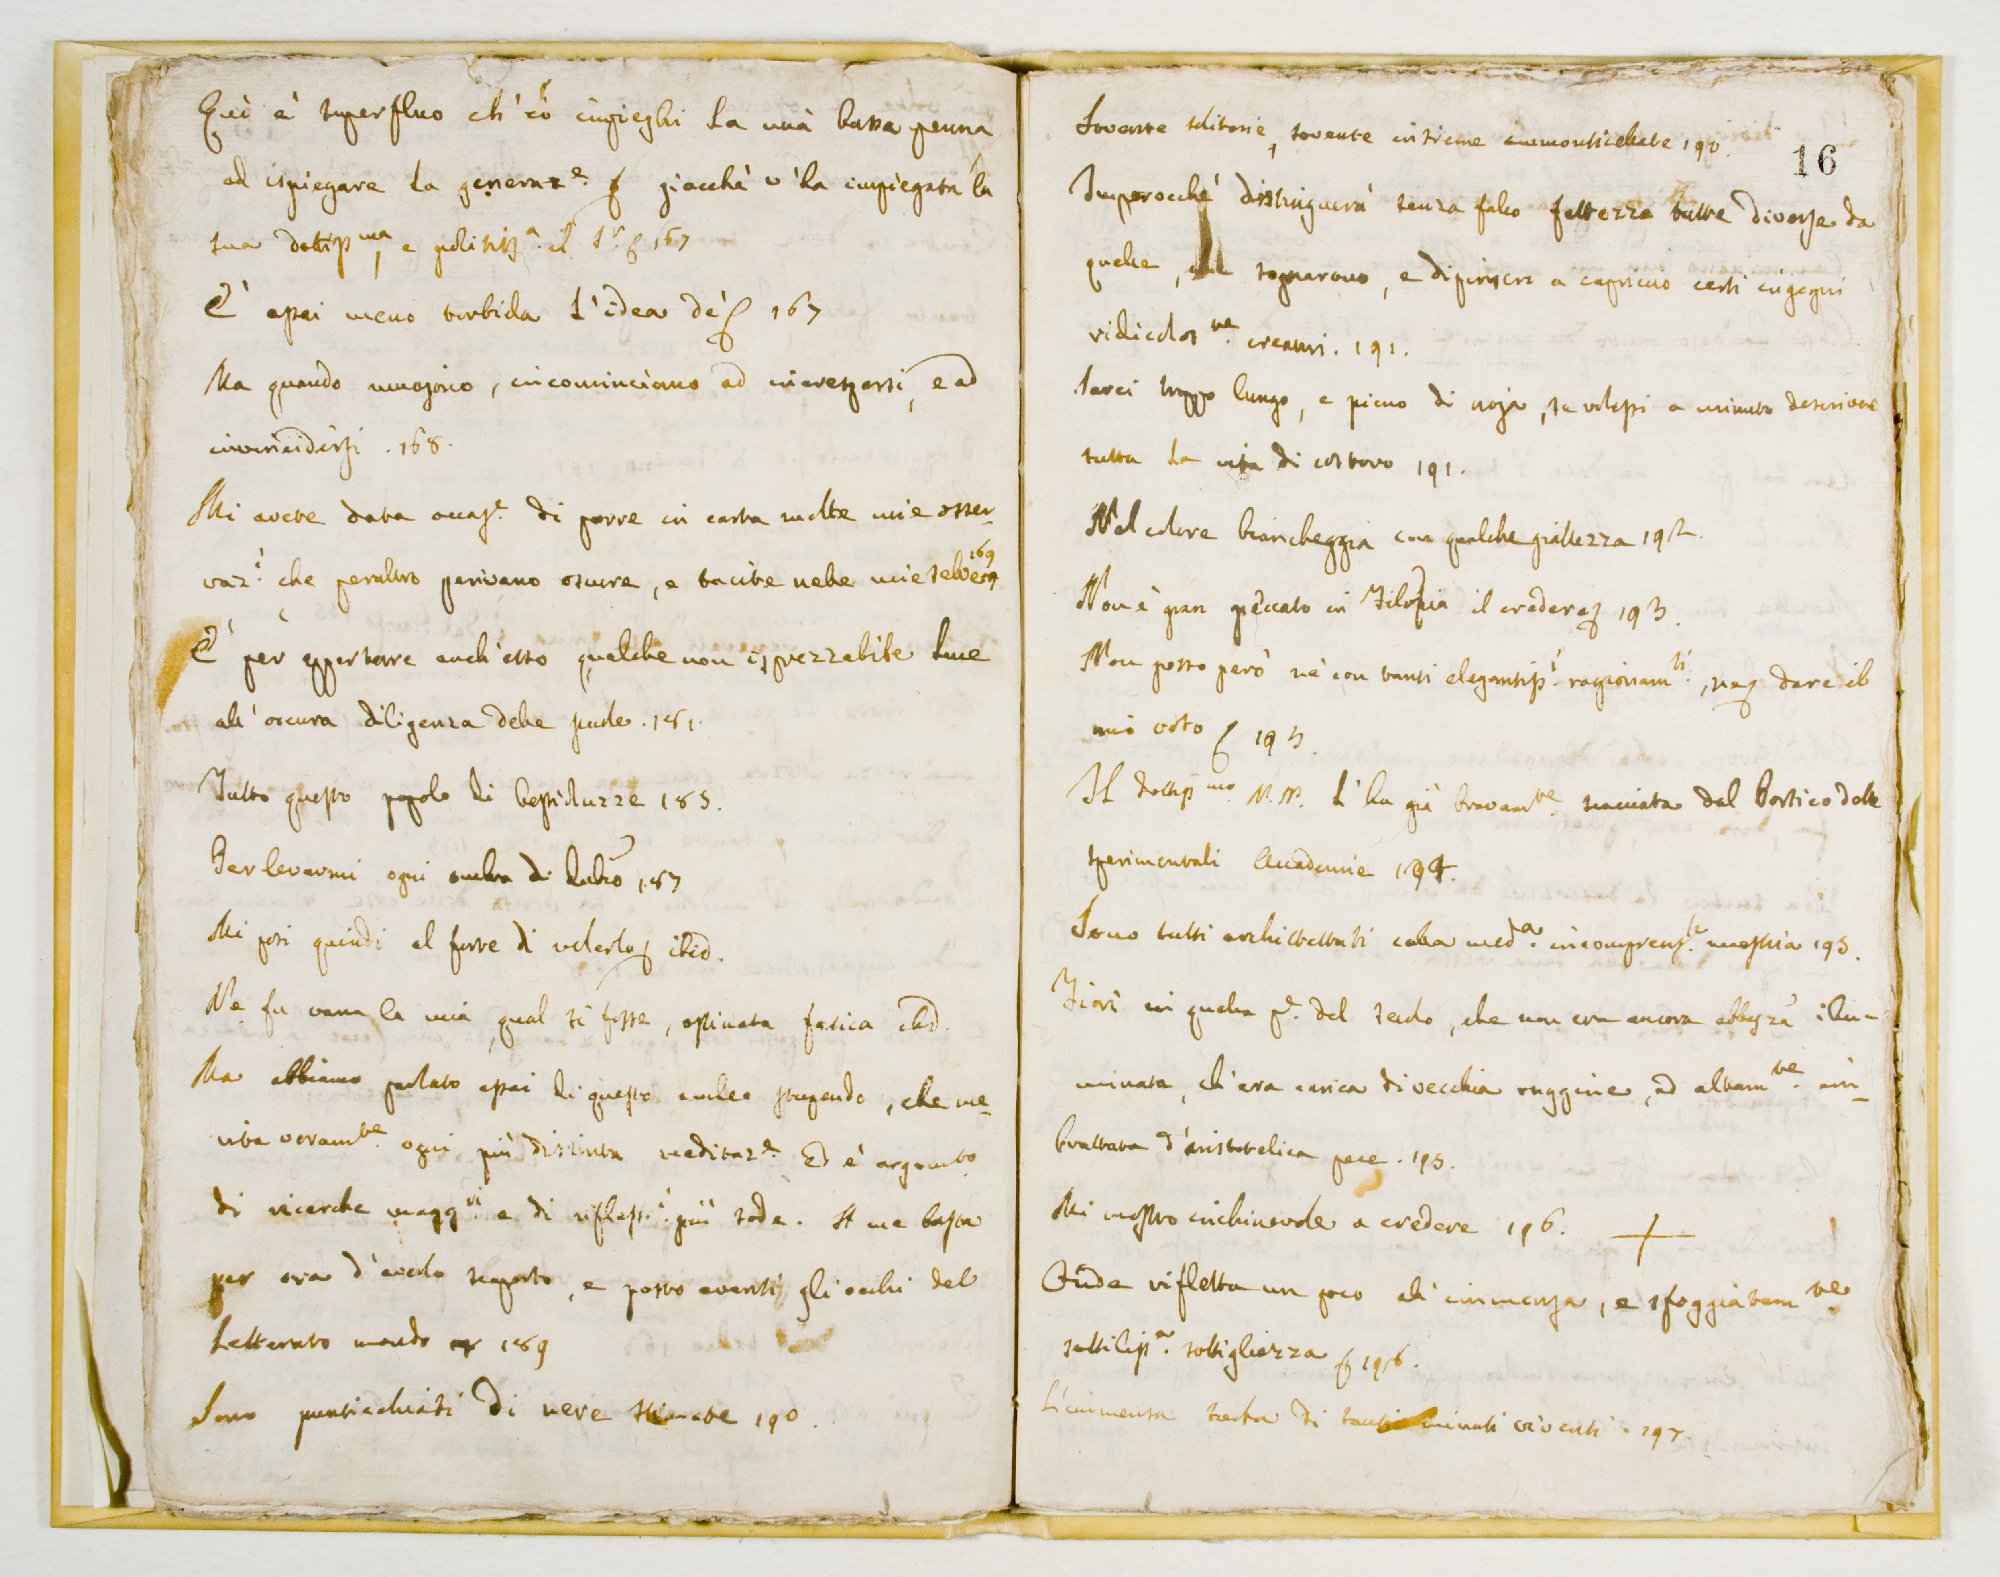 Qui è superfluo ch' io impieghi la mia bassa penna
ad ispiegare la generaz.e giacchè v'ha impiegata la
sua dottiss.ma, e politiss.a il S.r 167
È assai meno torbida l'idea de' 167
Ma quando muojono, incominciano ad increspersi, e ad
invincidirsi . 168.
Mi avete data occas.e di porre in carta molte mie osser-
vaz.i che peraltro perivano oscure, e tacite nelle mie selve 169
È per apportare anch'esso qualche non isprezzabile luce
all'oscura diligenza delle 181.
Tutto questo popolo di bestioluzze 185.
Per levarmi ogni ombra di dubio 187
Mi posi quindi al forte di vederlo ibid.
Ne fu vana la mia, qual si fosse, ostinata fatica ibid.
Ma abbiamo parlato assai di questo stupendo, che me-
rita veram.te ogni più distinta meditaz.e Ed è argom.to
di ricerche magg.ri e di rifless.i più sode. A me basta
per ora d'averlo scoperto, e posto avanti gli occhi del
Letterato mondo 189
Sono punticchiati di nere 190.
16
Sovente solitarie, sovente insieme ammonticchiate 190.
Imperocchè distinguerà senza fallo fattezze tutte diverse da
quelle, che sognarono, e dipinsero a capriccio certi ingegni
ridicolos.te creatori. 191.
Sarei troppo lungo, e pieno di noja, se volessi a minuto descrivere
tutta la vita di costoro 191.
Nel colore biancheggia con qualche giallezza 192.
Non è gran peccato in Filosofia il credere 193.
Non posso però nè con tanti elegantiss.i ragionam.ti, nè dare il
mio voto 193.
Il dottiss.mo N.N. l'ha già bravam.te scacciata dal Portico delle
sperimentali Accademie 194.
Sono tutti architettati colla med.a incomprens.le maestria 195.
Fiorì in quella p.e del secolo, che non era ancora abbastanza illu-
minata, ch'era carica di vecchia ruggine, ed altam.te im-
brattata d'aristotelica pece. 195.
Mi mostro inchinevole a credere 196.
Onde rifletta un poco all' immensa, e sfoggiatam.te
sottiliss.a sottigliezza 196.
L'immensa turba di tanti minuti viventi . 197.